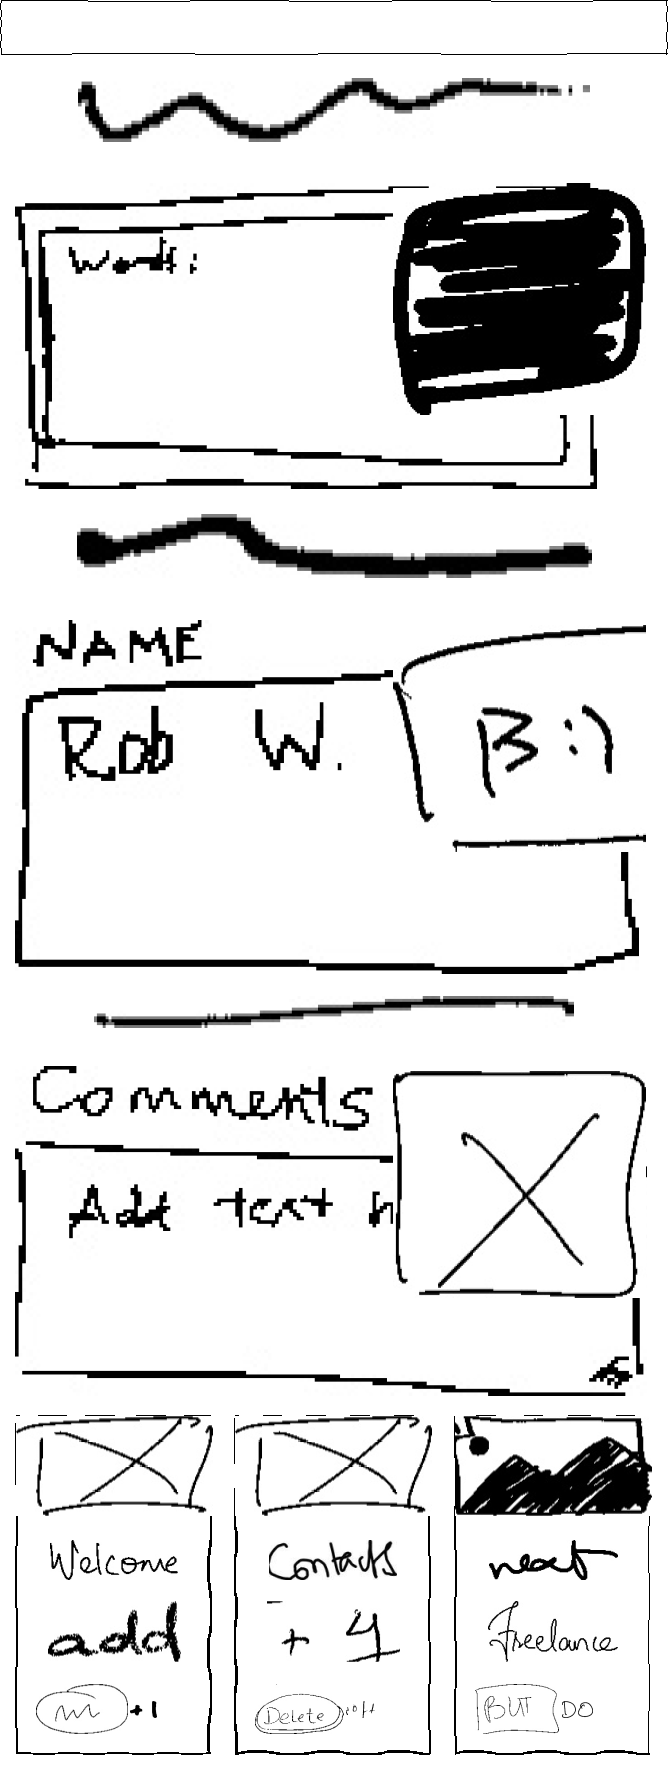 Words:
NAME
Rob W.
B:)
Comments
Add text h
Welcome
add
+1
Contacts
+ 4
Delete
next
Freelance
BUT DO